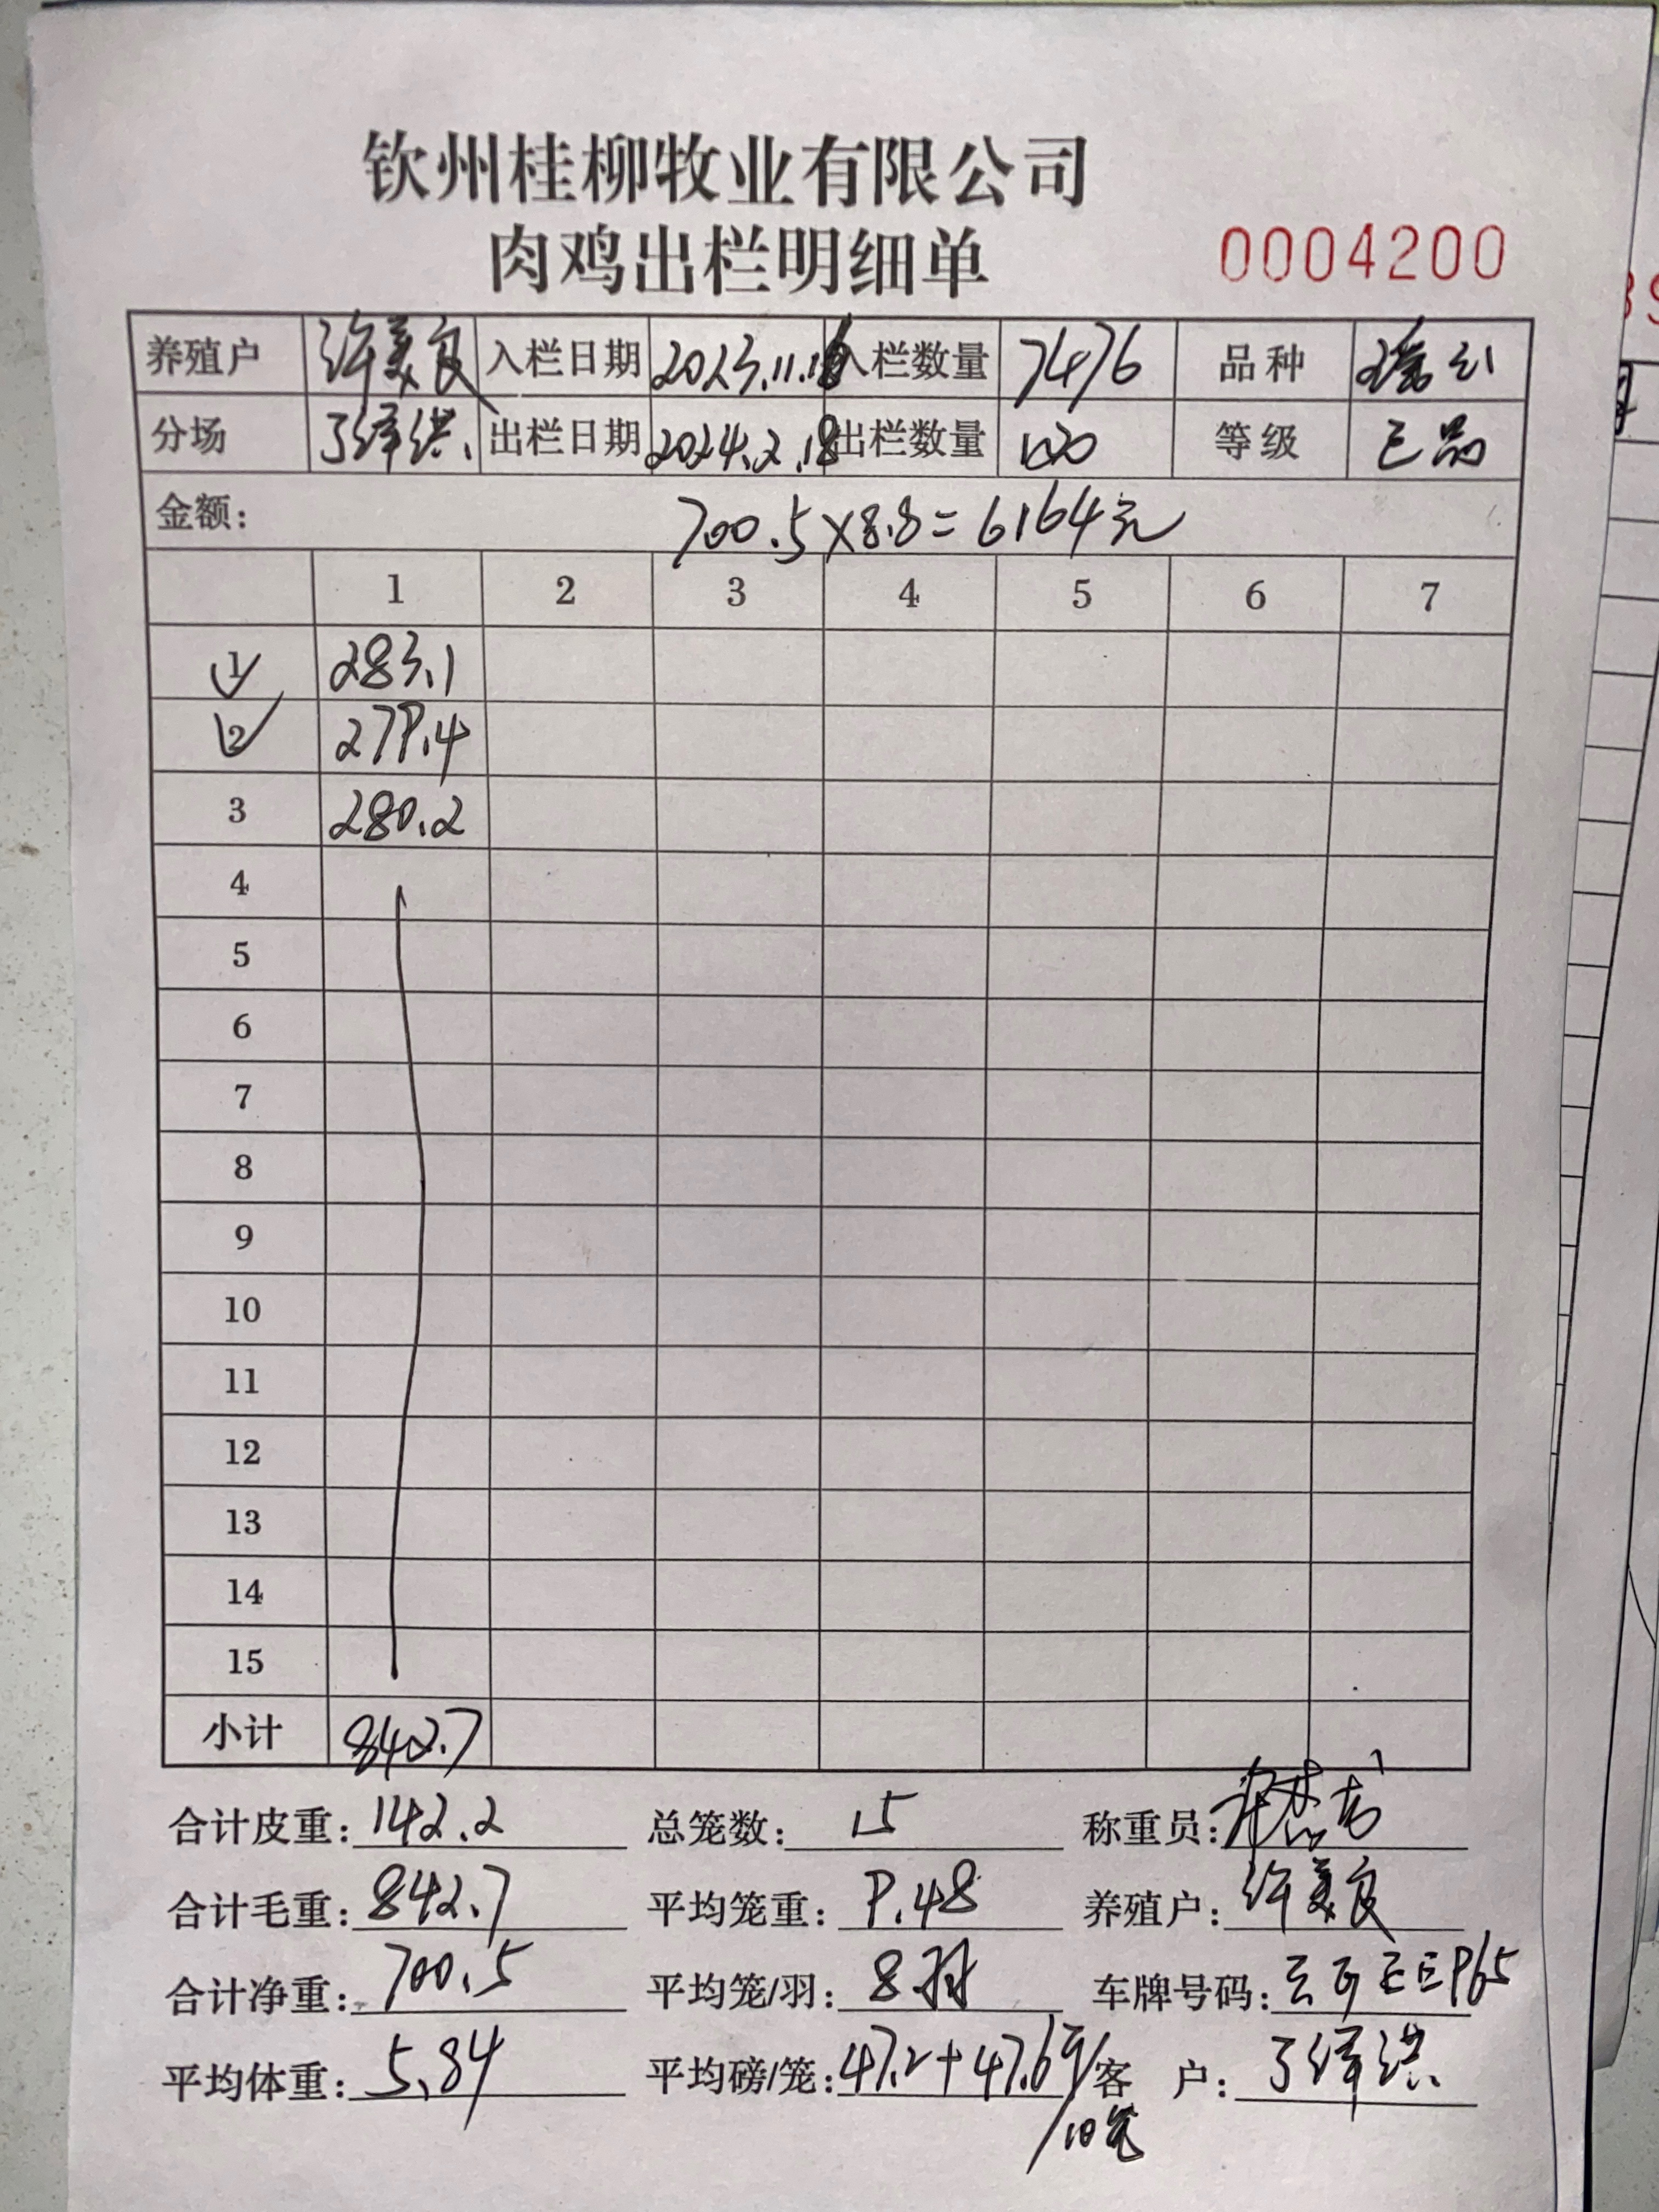 钦州桂柳牧业有限公司
肉鸡出栏明细单
0004200
养殖户 许美良 入栏日期 2023.11.18 入栏数量 7476 品种 瑶红
分场 出栏日期 2024.2.18 出栏数量 120 等级 正品
金额: 700.5×8.8=6164元
1 2 3 4 5 6 7
1 283.1
2 279.4
3 280.2
4
5
6
7
8
9
10
11
12
13
14
15
小计 842.7
合计皮重: 142.2 总笼数: 15 称重员:
合计毛重: 842.7 平均笼重: 9.48 养殖户: 许美良
合计净重: 700.5 平均笼/羽: 8羽 车牌号码:
平均体重: 5.84 平均磅/笼: 47.2+47.6 客 户: